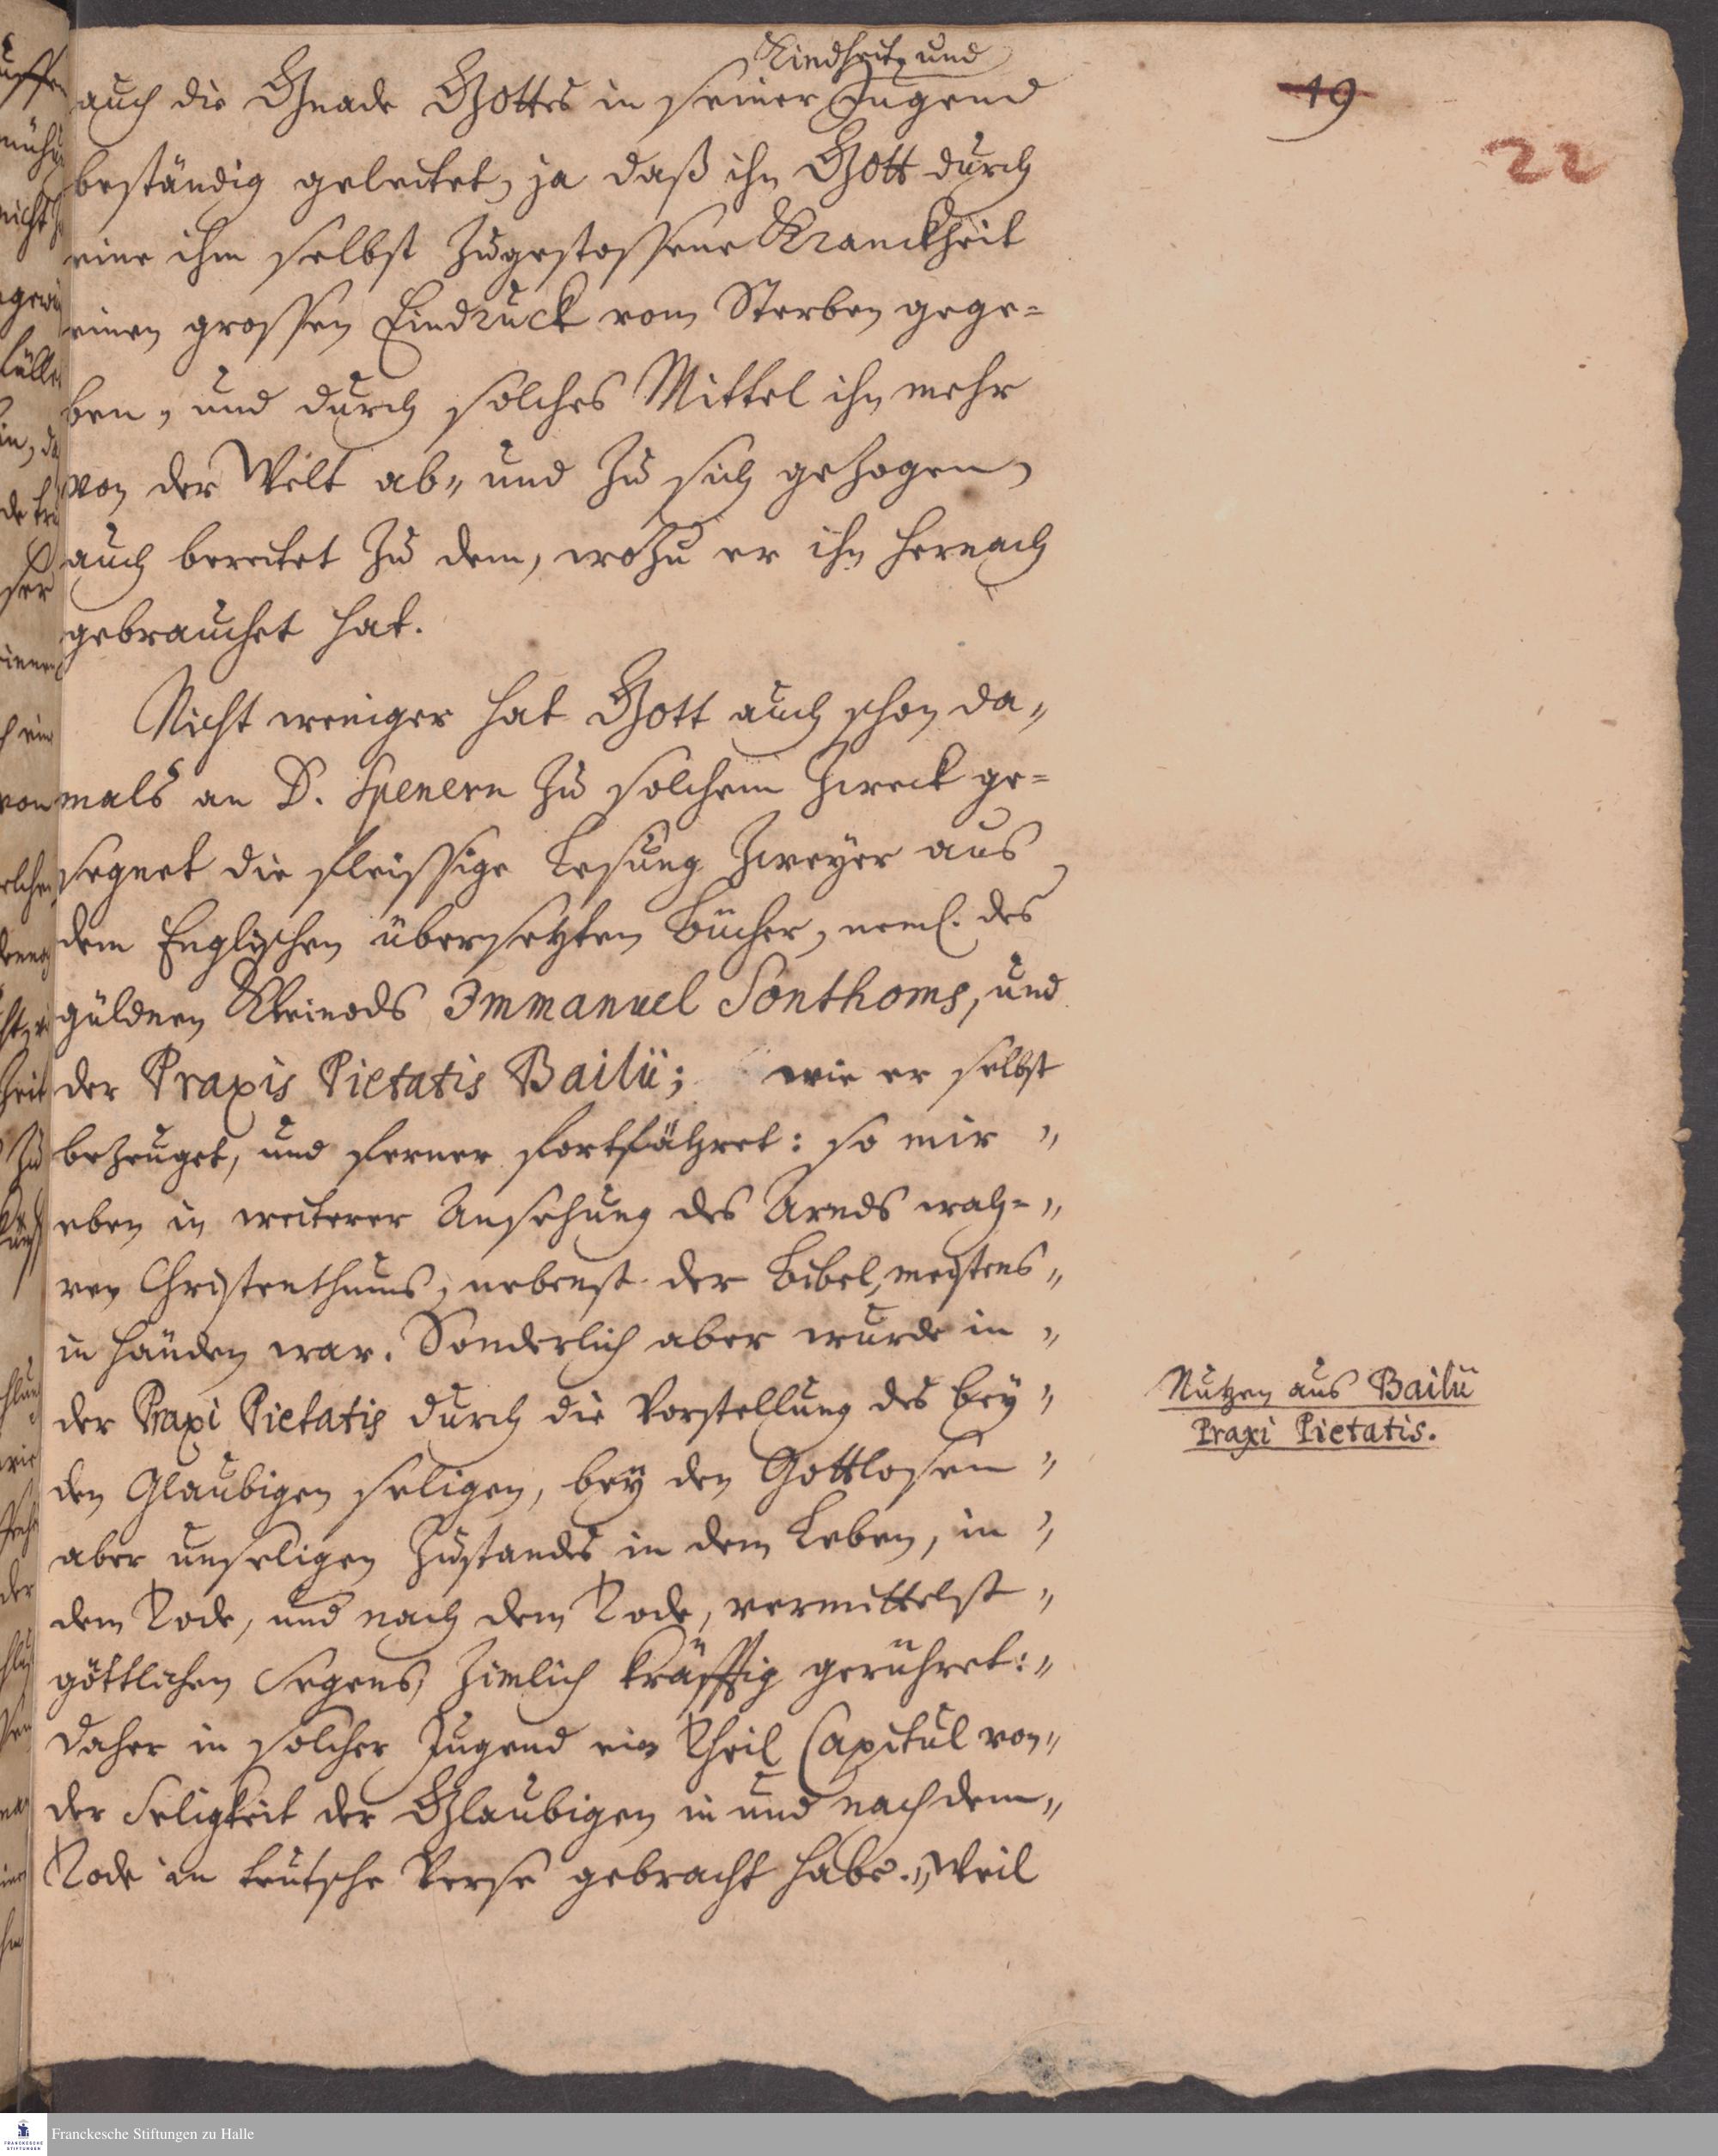 Kindheit und
auch die Gnade Gottes in seiner Jugend
19
22
beständig geleitet, ja daß ihn Gott durch
eine ihm selbst zugestossene Kranckheit
einen grossen Eindruck vom Sterben gege=
ben, und durch solches Mittel ihn mehr
von der Welt ab„ und zu sich gezogen,
auch bereitet zu dem, wozu er ihn hernach
gebrauchet hat.
Nicht weniger hat Gott auch schon da„
mals an D. Spenern zu solchem Zweck ge=
segnet die fleissige Lesung zweyer aus
dem Englischen übersetzten Bücher, neml. des
güldnen Kleinods Immanuel Sonthoms, und
der Praxis Pietatis Bailii; wie er selbst
bezeuget, und ferner fortfähret: so mir „
eben in weiterer Ansehung des Arnds wah= „
ren Christenthums, nebenst der Bibel, meistens „
in Händen war. Sonderlich aber wurde in „
der Praxi Pietatis durch die Vorstellung des bey „
den Glaubigen seligen, bey den Gottlosen „
aber unseligen Zustandes in dem Leben, in „
dem Tode, und nach dem Tode, vermittelst „
göttlichen Segens, zimlich kräfftig gerühret: „
daher in solcher Jugend ein Theil Capitul von „
der Seligkeit der Glaubigen in und nach dem „
Tode in teutsche Verse gebracht habe. „ Weil
Nutzen aus Bailii
Praxi Pietatis.
FRANCKESCHE
STIFTUNGEN
Franckesche Stiftungen zu Halle